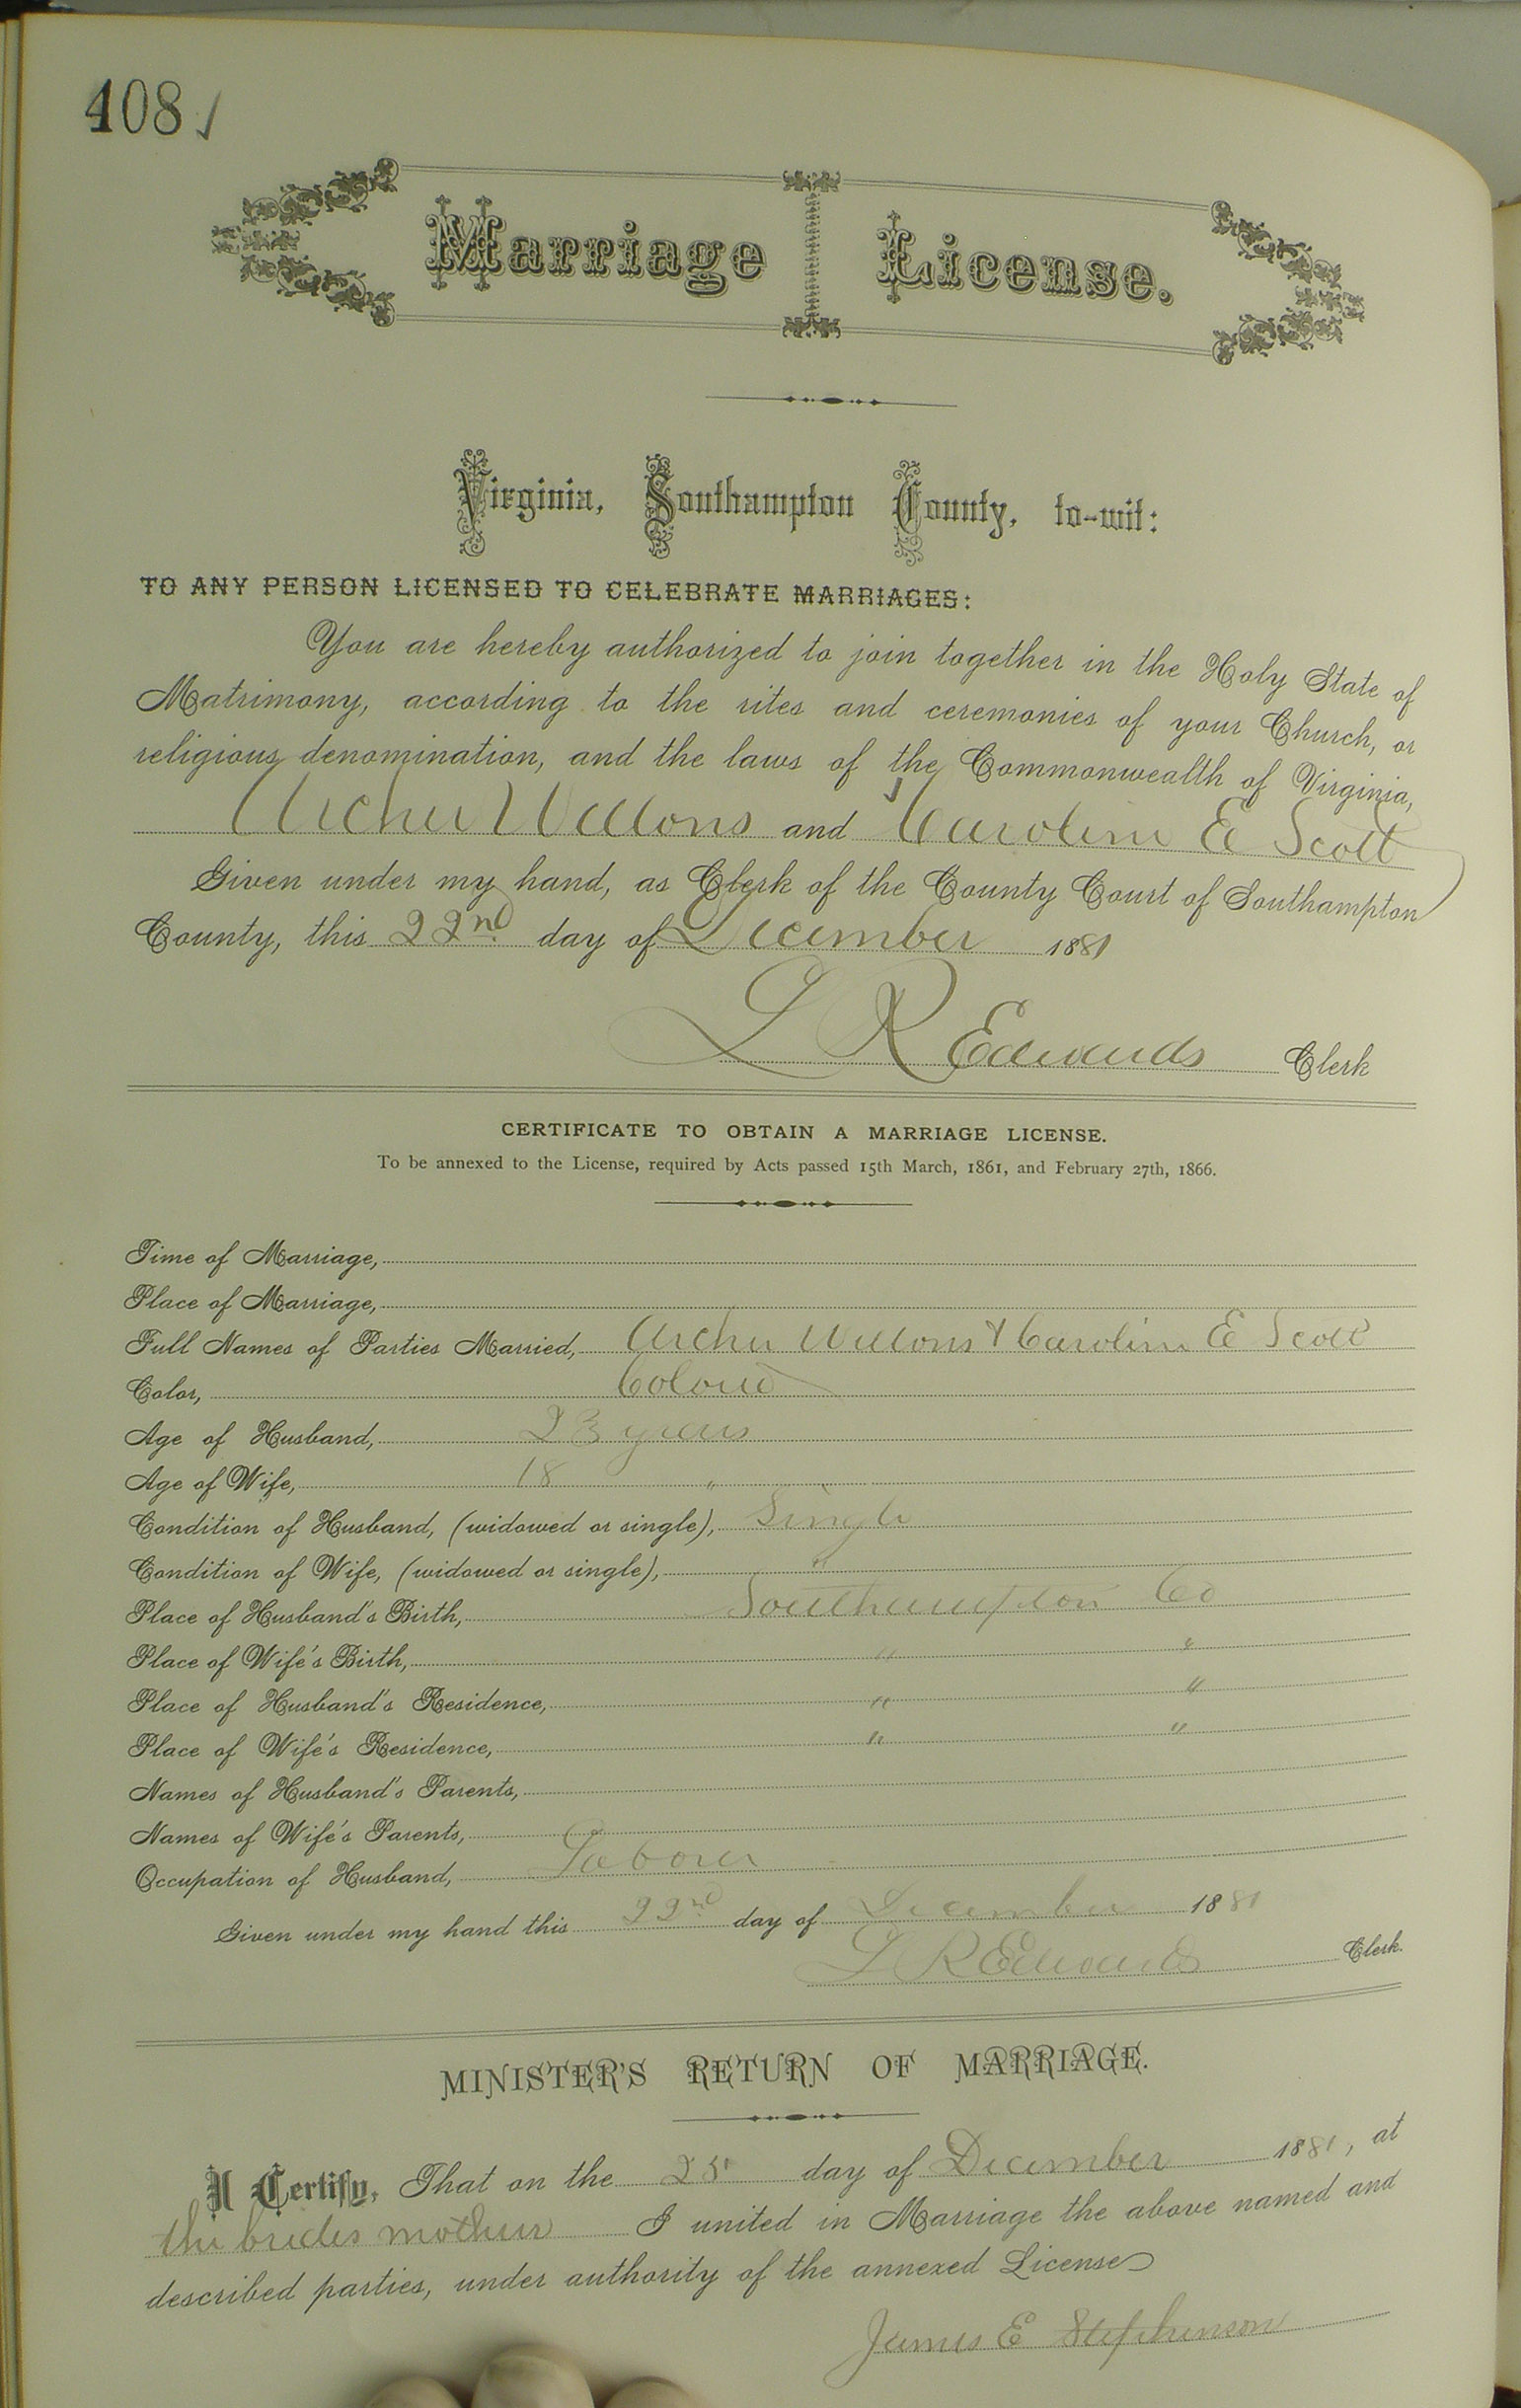 408
Marriage License.
Virginia, Southampton County, to-wit:
TO ANY PERSON LICENSED TO CELEBRATE MARRIAGES:
You are hereby authorized to join together in the Holy State of
Matrimony, according to the rites and ceremonies of your Church, or
religious denomination, and the laws of the Commonwealth of Virginia,
Archer and Caroline E Scott
Given under my hand, as Clerk of the County Court of Southampton
County, this 22nd day of December 1881
L R Edwards Clerk
CERTIFICATE TO OBTAIN A MARRIAGE LICENSE.
To be annexed to the License, required by Acts passed 15th March, 1861, and February 27th, 1866.
Time of Marriage,
Place of Marriage,
Full Names of Parties Married, Archer & Caroline E Scott
Color, Colored
Age of Husband, 23 years
Age of Wife, 18 "
Condition of Husband, (widowed or single), Single
Condition of Wife, (widowed or single), "
Place of Husband's Birth, Southampton Co
Place of Wife's Birth, " "
Place of Husband's Residence, " "
Place of Wife's Residence, " "
Names of Husband's Parents,
Names of Wife's Parents,
Occupation of Husband, Laborer
Given under my hand this 22nd day of December 1881
L R Edwards Clerk.
MINISTER'S RETURN OF MARRIAGE.
I Certify, That on the 25 day of December 1881, at
the brides mother I united in Marriage the above named and
described parties, under authority of the annexed License
James E Stephenson